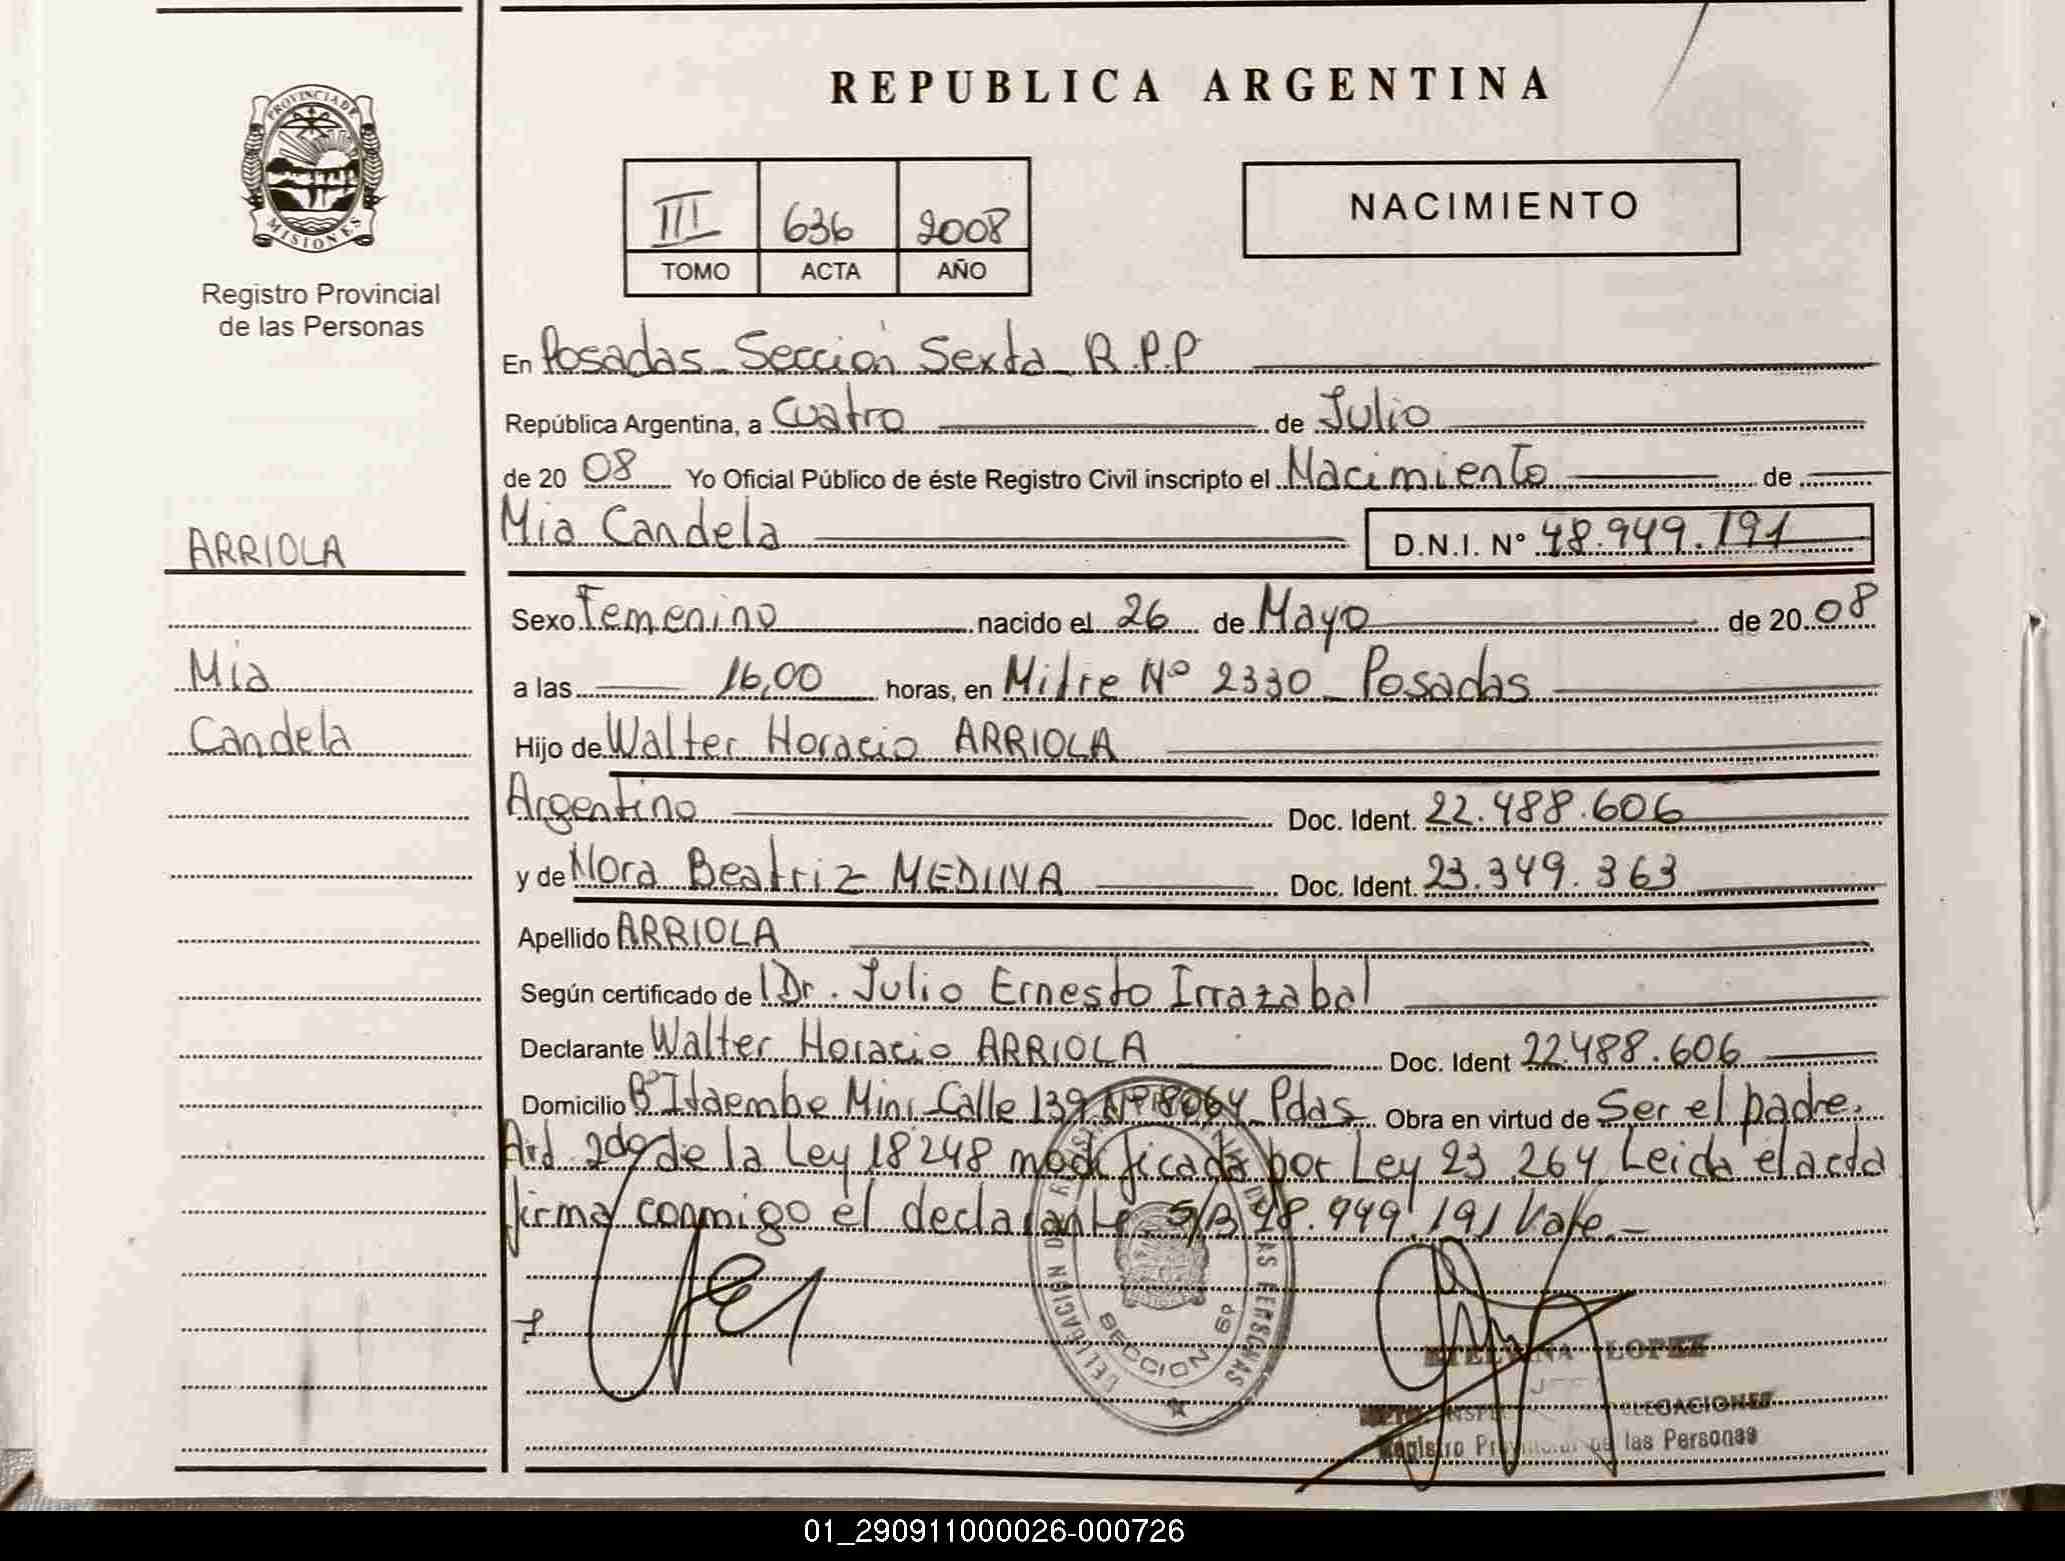 REPUBLICA ARGENTINA
PROVINCIA DE
MISIONES
Registro Provincial
de las Personas
III 636 2008
TOMO ACTA AÑO
NACIMIENTO
ARRIOLA
Mia
Candela
En Posadas_Sección Sexta_R.P.P
República Argentina, a Cuatro de Julio
de 2008 Yo Oficial Público de éste Registro Civil inscripto el Nacimiento de
Mia Candela D.N.I. Nº 48.949.191
Sexo Femenino nacido el 26 de Mayo de 2008
a las 16,00 horas, en Mitre Nº 2330_Posadas
Hijo de Walter Horacio ARRIOLA
Argentino Doc. Ident. 22.488.606
y de Nora Beatriz MEDINA Doc. Ident. 23.349.363
Apellido ARRIOLA
Según certificado de Dr. Julio Ernesto Irrazabal
Declarante Walter Horacio ARRIOLA Doc. Ident 22.488.606
Domicilio Bº Itaembe Mini_Calle 139 Nº 8064_Pdas Obra en virtud de Ser el padre.
Art 2do de la Ley 18248 modificada por Ley 23.264, Leida el acta
firma conmigo el declarante S/B 48.949.191 Vale.-
DELEGACION
DE LAS PERSONAS
SECCION 6º
LOPEZ
JEFE
DELEGACIONES
Registro Provincial de las Personas
01_290911000026-000726